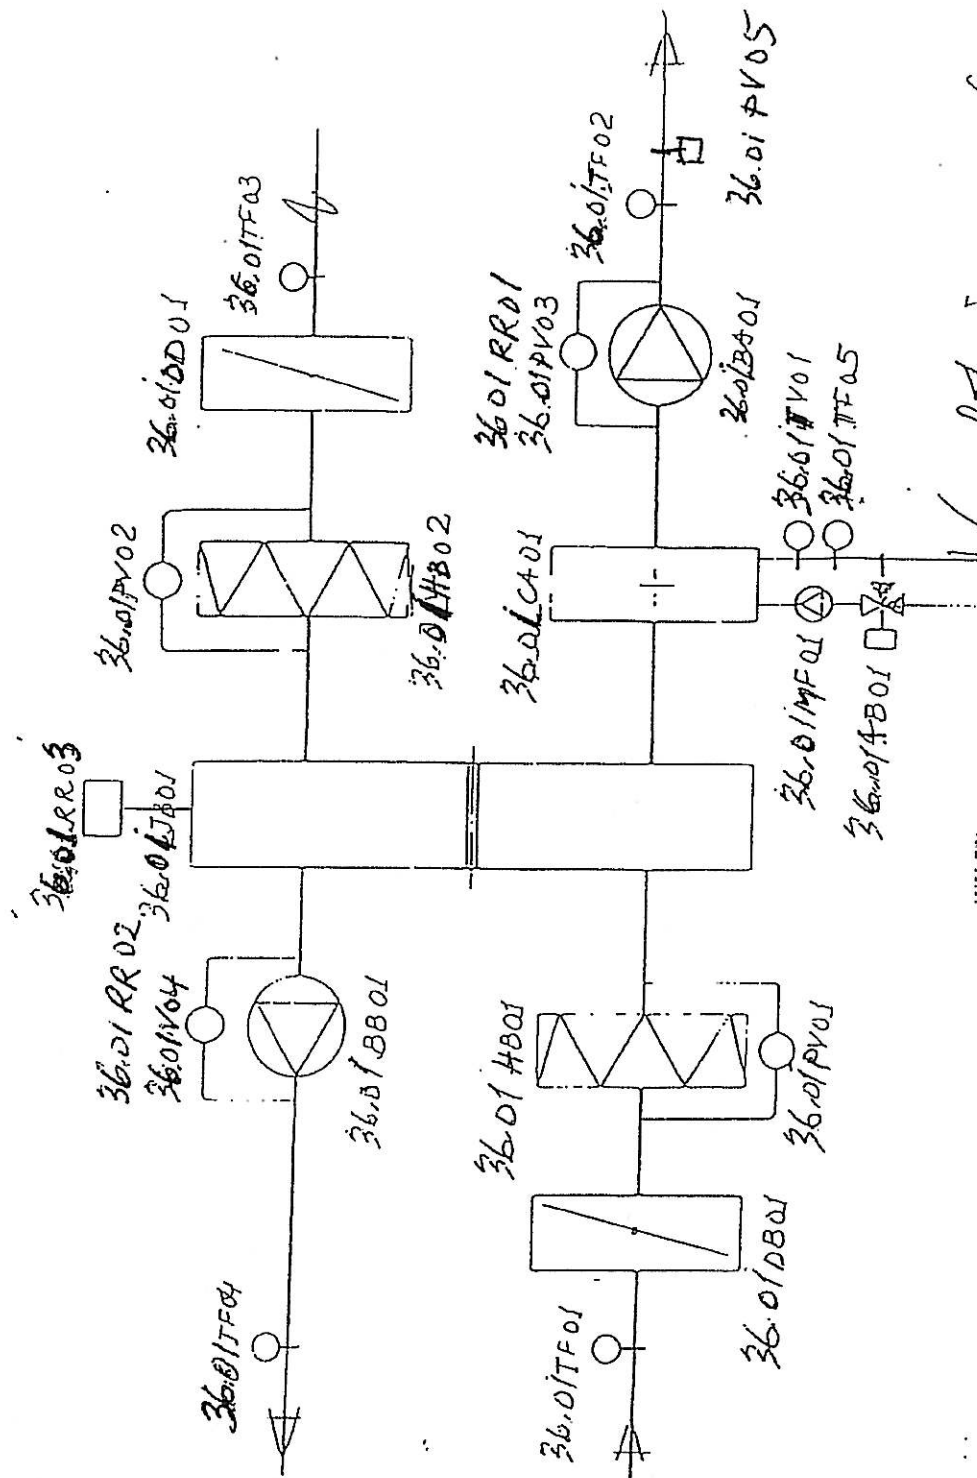 36.01TF03
36.01DD01
36.01PV02
36.01HB02
36.01RR03
36.01JB01
36.01RR02
36.01PV04
36.01BB01
36.01TF04
36.01PV05
36.01TF02
36.01RR01
36.01PV03
36.01BA01
36.01TV01
36.01TF05
36.01CA01
36.01MF01
36.01AB01
36.01HB01
36.01PV01
36.01DB01
36.01TF01